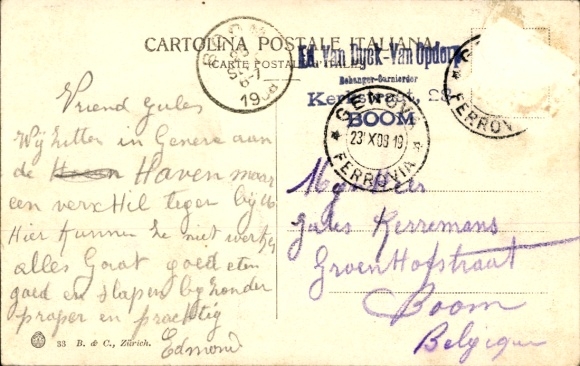 CARTOLINA POSTALE ITALIANA
(CARTE POSTALE ITALIENNE)
Ed. Van Dyck-Van Opdorp
Behanger-Garnierder
Kerkstraat, 28
BOOM
BOOM
GENOVA
23 X 08 19
FERROVIA
FERROV
Vriend Gules
Wij zitten in Genere aan
de Haven maar
een verschil tegen bij
Hier kunnen ze niet werken
alles Gaat goed eten
goed en slapen bijzonder
proper en prachtig
Edmond
Mijnheer
Jules Kerremans
GroenHofstraat
Boom
Belgique
33 B. & C., Zürich.